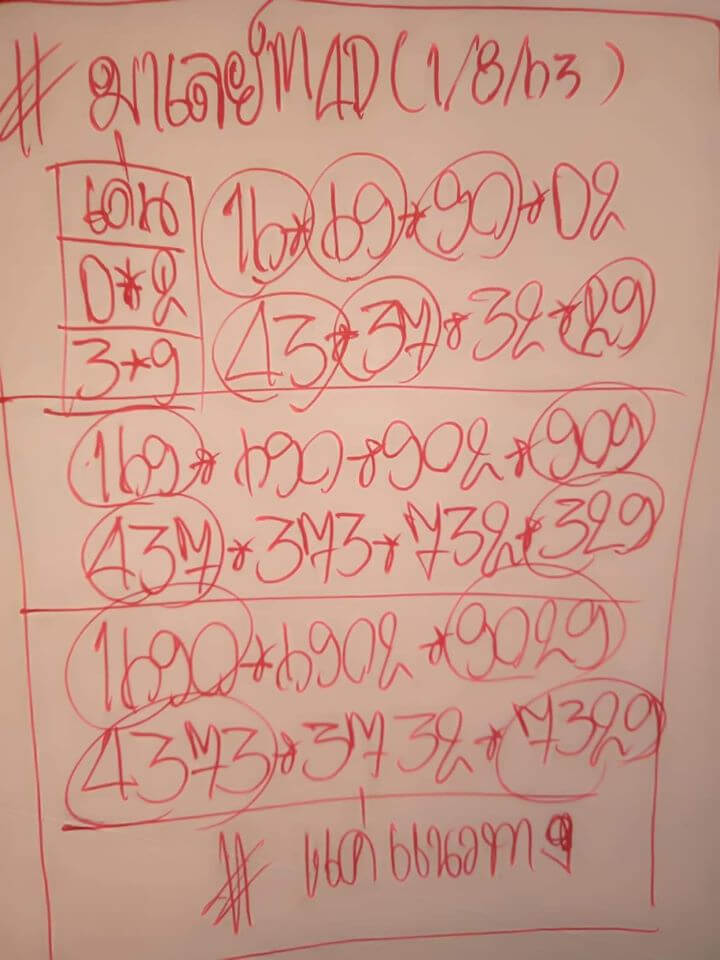 # มาเลย์ฯ 4D (1/8/63)
เด่น
0*2
3*9
16*69*90*02
43*37*32*29
169*690*902*909
437*373*732*329
1690*6902*9029
4373*3732*7329
# แค่แนวทาง